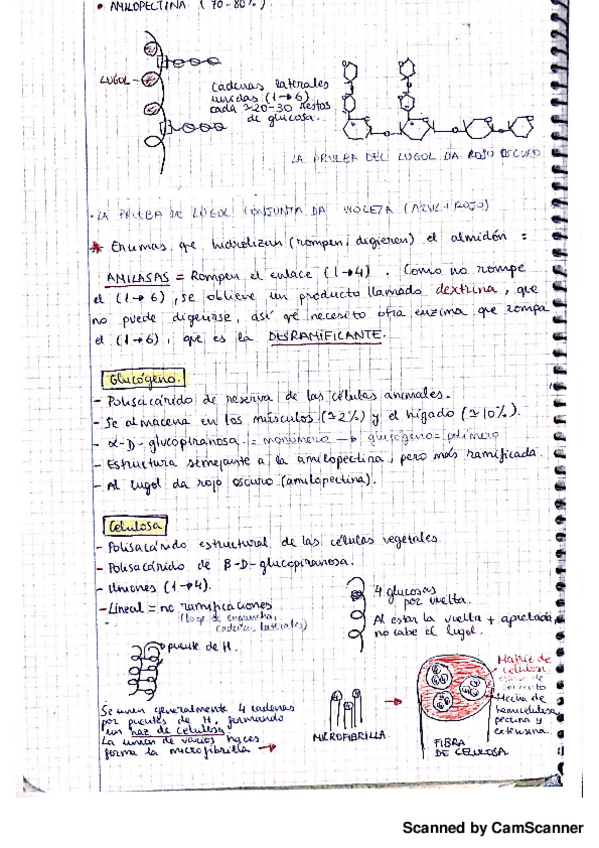 • AMILOPECTINA (70-80%).
LUGOL
Cadenas laterales
unidas (1→6)
cada ≃20-30 restos
de glucosa.
LA PRUEBA DEL LUGOL DA ROJO OSCURO
· LA PRUEBA DE LUGOL CONJUNTA DA VIOLETA (AZUL + ROJO)
* Enzimas qe hidrolizan (rompen, digieren) el almidón :
AMILASAS = Rompen el enlace (1→4) . Como no rompe
el (1→6) , se obtiene un producto llamado dextrina , que
no puede digerirse, así qe necesito otra enzima que rompa
el (1→6) , que es la DESRAMIFICANTE.
Glucógeno.
- Polisacárido de reserva de las células animales.
- Se almacena en los músculos (≃2%) y el hígado (≃10%).
- α-D-glucopiranosa = monómero → glucógeno = polímero
- Estructura semejante a la amilopectina, pero más ramificada.
- Al lugol da rojo oscuro (amilopectina).
Celulosa
- Polisacárido estructural de las células vegetales
- Polisacárido de β-D-glucopiranosa.
- Uniones (1→4).
- Lineal = no ramificaciones
cadenas laterales)
4 glucosas
por vuelta.
Al estar la vuelta + apretada
no cabe el lugol.
puente de H.
Se unen generalmente 4 cadenas
por puentes de H, formando
un haz de celulosa
La unión de varios haces
forma la microfibrilla →
MICROFIBRILLA
Matriz de
celulosa
hecha de
hemicelulosa,
pectina y
extensina.
FIBRA
DE CELULOSA
Scanned by CamScanner